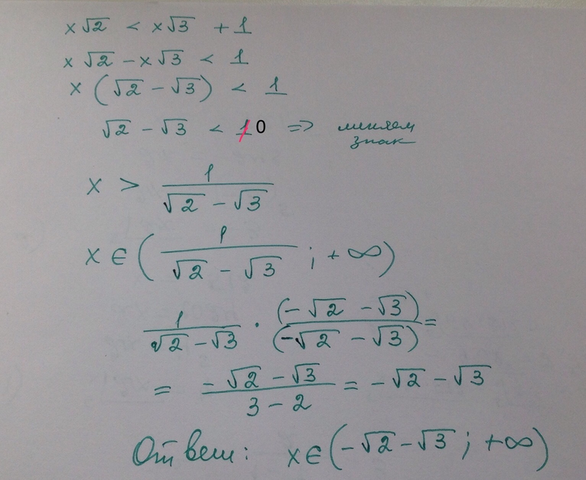 x√2 < x√3 + 1
x√2 - x√3 < 1
x (√2 - √3) < 1
√2 - √3 < 1 0 => меняем
знак
x > 1/(√2 - √3)
x ∈ (1/(√2 - √3) ; +∞)
1/(√2 - √3) · (-√2 - √3)/(-√2 - √3) =
= (-√2 - √3)/(3 - 2) = -√2 - √3
Ответ: x ∈ (-√2 - √3 ; +∞)